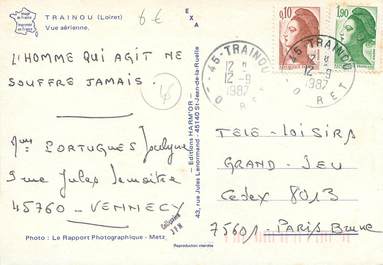 TRAINOU (Loiret)
Vue aérienne.
6€
E X A
L'HOMME QUI AGIT NE
SOUFFRE JAMAIS.
45
Mme PORTUGUES Jocelyne
3 rue Jules Lemaitre
45760 - VENNECY
Photo : Le Rapport Photographique - Metz
Collection
Reproduction interdite
— Editions HARM'OR —
43, rue Jules Lenormand - 45140 St-Jean-de-la-Ruelle
0,10
1,90
45-TRAINOU
12 H
12-9
1987
LOIRET
45-TRAINOU
12 H
12-9
1987
LOIRET
TELE-LOISIRS
GRAND-JEU
Cedex 8013
75601 - PARIS Brune